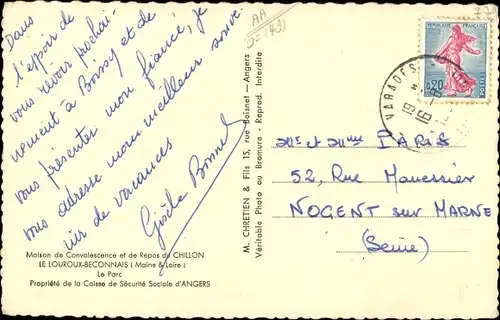 Dans
l'espoir de
vous revoir prochai-
nement à Boissy et de
vous présenter mon fiancé, je
vous adresse mon meilleur souve-
nir de vacances
Gisèle Bonnel
Maison de Convalescence et de Repos du CHILLON
LE LOUROUX-BECONNAIS (Maine & Loire)
Le Parc
Propriété de la Caisse de Sécurité Sociale d'ANGERS
M. CHRETIEN & Fils 15, rue Boisnet - Angers
Véritable Photo au Bromure - Reprod. Interdite
AA
(49)
REPUBLIQUE FRANÇAISE
0,20
POSTES
VARADES
19
16-8
Mr et Mme PARIS
52, Rue Manessier
NOGENT sur MARNE
(Seine)